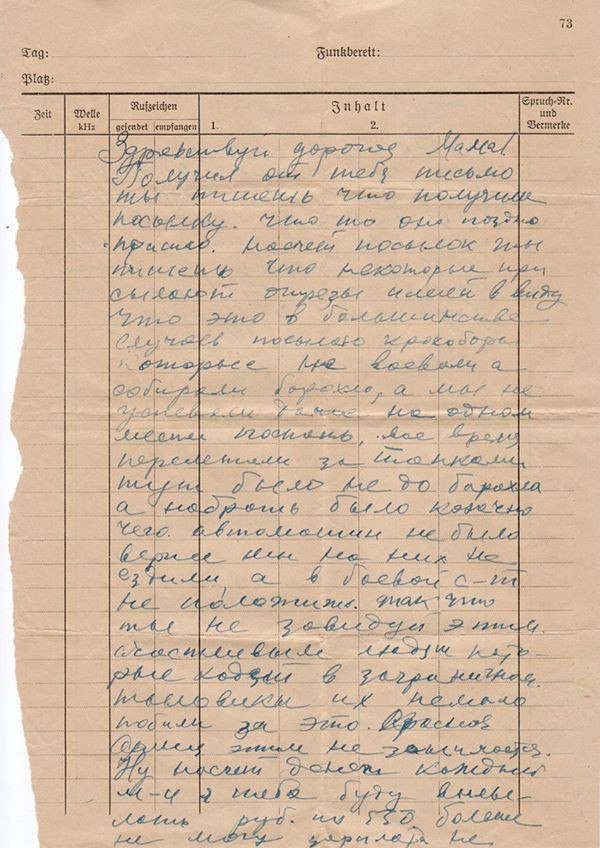 73
Tag:
Funkbereit:
Platz:
Zeit
Welle
kHz
Rufzeichen
gesendet
empfangen
Inhalt
1.
2.
Spruch-Nr.
und
Vermerke
Здравствуй дорогая Мама!
Получил от тебя письмо
ты пишешь что получили
посылку. что то оно поздно
пришло. насчет посылок ты
пишешь что некоторые при
сылают отрезы имей в виду
что это в большинстве
случаев посылают крохоборы
которые не воевали а
собирали барахло, а мы не
успевали даже на одном
месте поспать, все время
перелетали за танками
тут было не до барахла
а набрать было конечно
чего. автомашин не было
вернее мы на них не
ездили а в боевой с-т
не положишь. так что
ты не завидуй этим
счастливым людям кото-
рые ходят в заграничном
тыловики их немало
побили за это. Красная
Армия этим не занимается.
Ну насчет денег каждый
м-ц я тебе буду высы-
лать руб. по 550 более
не могу зарплата не